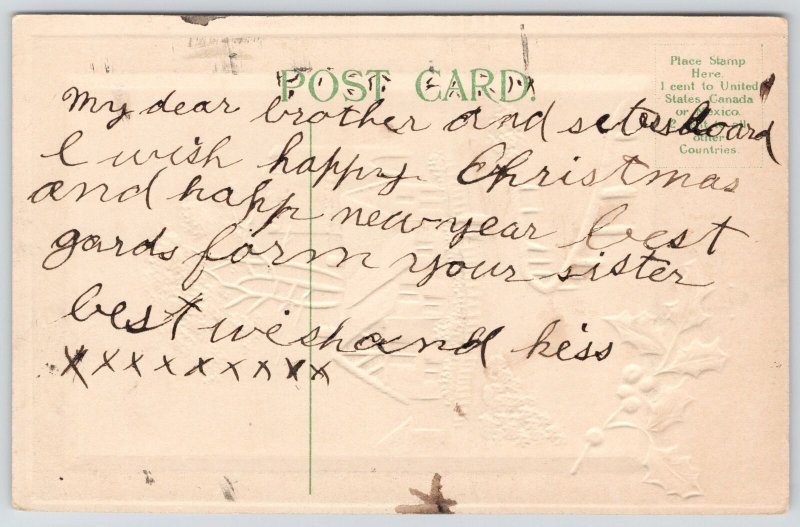 POST CARD.
Place Stamp
Here.
1 cent to United
States, Canada
or Mexico.
other
Countries.
My dear brother and
I wish happy Christmas
and happ new year best
gards form your sister
best wish and kiss
xxxxxxxxx